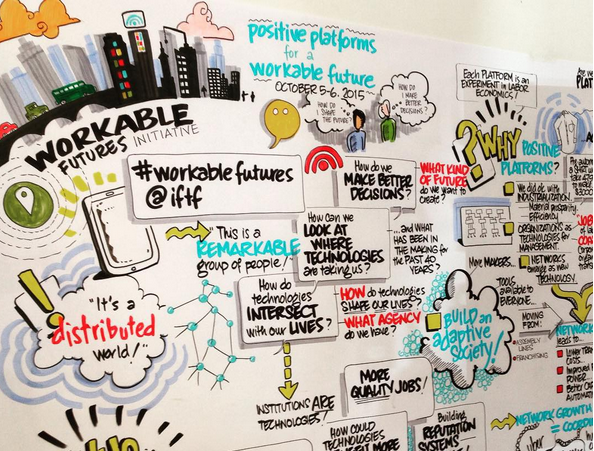 positive platforms
for a
workable future
OCTOBER 5-6, 2015
HOW DO
I SHAPE
THE FUTURE?
HOW DO
I MAKE
BETTER
DECISIONS?
WORKABLE
FUTURES INITIATIVE
#workable futures
@iftf
"This is a
REMARKABLE
group of people!
"It's a
distributed
world!"
How do we
MAKE BETTER
DECISIONS?
WHAT KIND
OF FUTURE
do we want to
create?
How can we
LOOK AT
WHERE
TECHNOLOGIES
are taking us?
...and WHAT
HAS BEEN IN
THE MAKING FOR
THE PAST 40
YEARS?
How do
technologies
INTERSECT
with our LIVES?
HOW do technologies
SHAPE OUR LIVES?
WHAT AGENCY
do we have?
INSTITUTIONS ARE
TECHNOLOGIES!
MORE
QUALITY JOBS!
HOW COULD
TECHNOLOGIES
Building
REPUTATION
SYSTEMS
BUILD an
adaptive
society!
Each PLATFORM is an
EXPERIMENT IN LABOR
ECONOMICS!
?WHY
POSITIVE
PLATFORMS?
We did it with
INDUSTRIALIZATION.
Material prosperity.
Efficiency.
ORGANIZATIONS AS
TECHNOLOGIES for
MANAGEMENT.
More MAKERS...
NETWORKS
emerge as new
TECHNOLOGY.
TOOLS
available to
EVERYONE.
MOVING
FROM:
ASSEMBLY
LINES
FRANCHISING
NETWORK
leads to...
NETWORK GROWTH